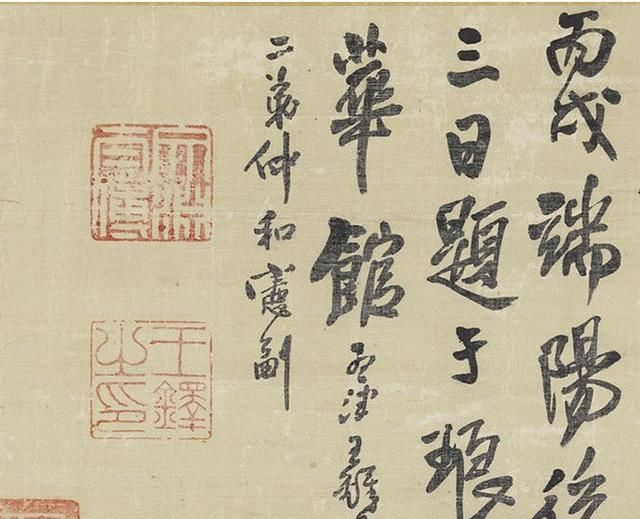 丙戌端陽後
三日題于琅
華館孟津王鐸
二弟仲和憲副
王鐸之印